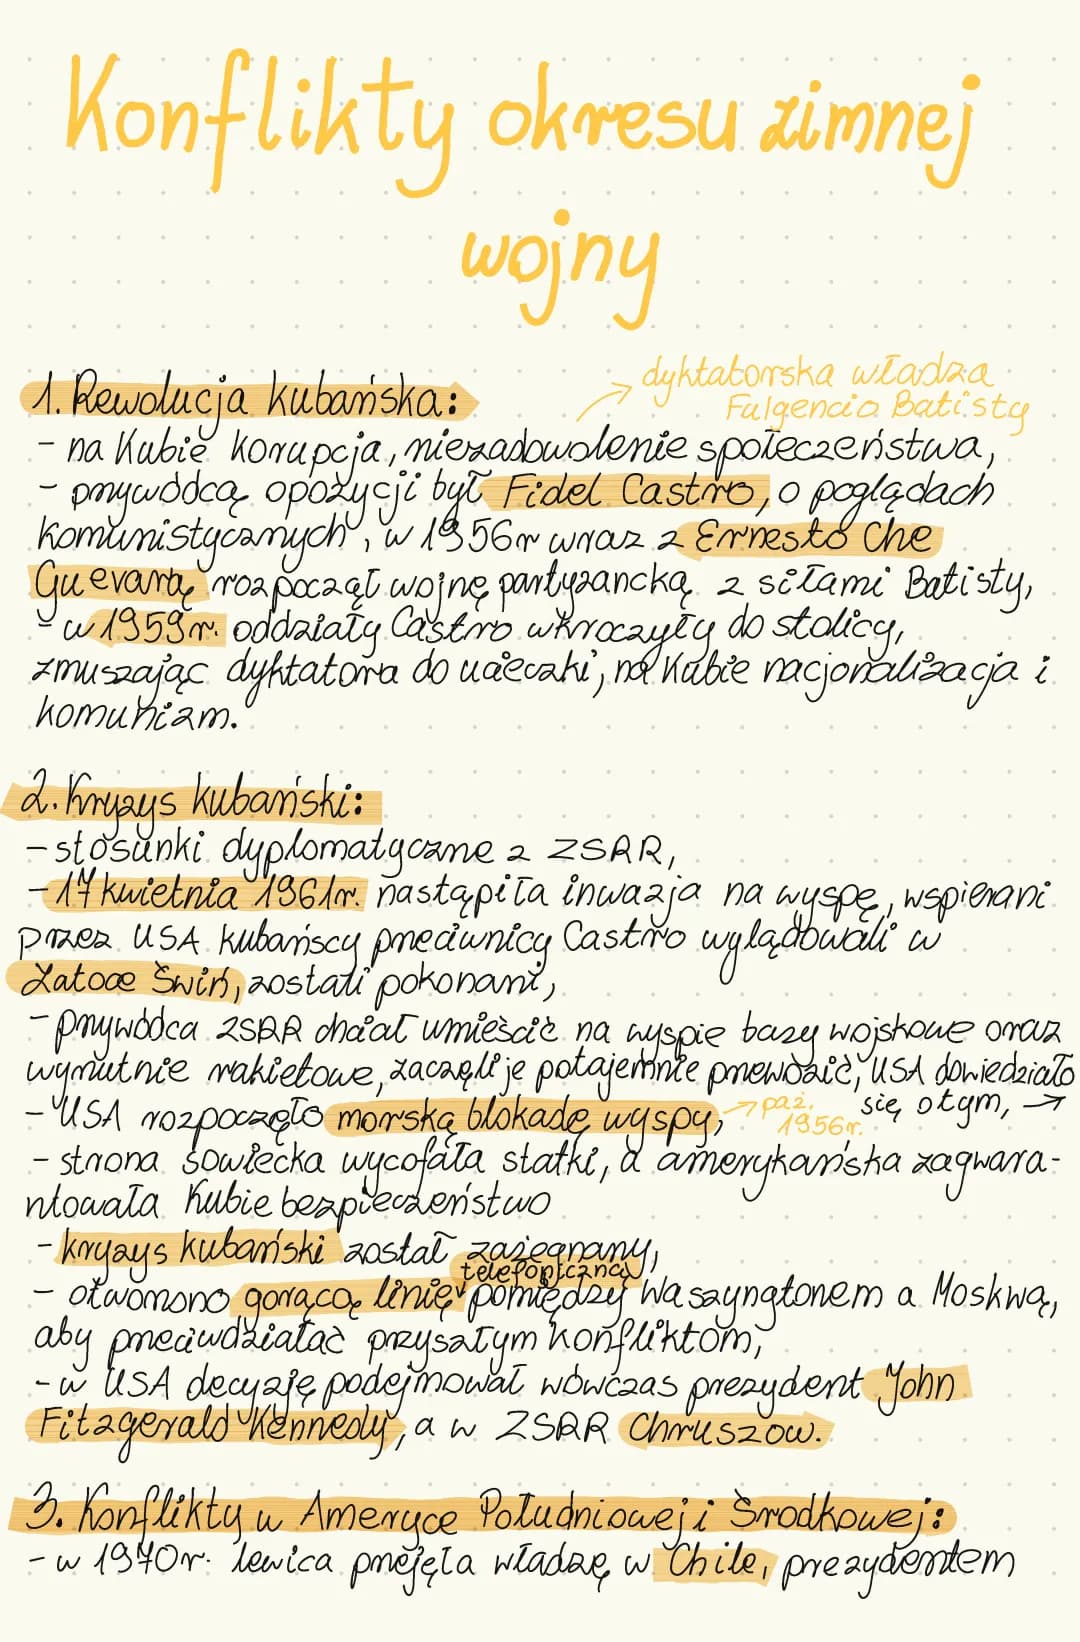 Konflikty okresu zimnej
wojny
1. Rewolucja kubańska:
→ dyktatorska władza
Fulgencio Batisty
- na Kubie korupcja, niezadowolenie społeczeństwa,
- przywódcą opozycji był Fidel Castro, o poglądach
komunistycznych, w 1956r wraz z Ernesto Che
Guevarą rozpoczął wojnę partyzancką z siłami Batisty,
- w 1959r. oddziały Castro wkroczyły do stolicy,
zmuszając dyktatora do ucieczki, na Kubie nacjonalizacja i
komunizm.
2. Kryzys kubański:
- stosunki dyplomatyczne z ZSRR,
- 17 kwietnia 1961r. nastąpiła inwazja na wyspę, wspierani
przez USA kubańscy przeciwnicy Castro wylądowali w
Zatoce Świń, zostali pokonani,
- przywódca ZSRR chciał umieścić na wyspie bazy wojskowe oraz
wyrzutnie rakietowe, zaczęli je potajemnie przewozić, USA dowiedziało
się o tym, →
- USA rozpoczęło morską blokadę wyspy, → paź.
1956r.
- strona sowiecka wycofała statki, a amerykańska zagwara-
ntowała Kubie bezpieczeństwo
- kryzys kubański został zażegnany,
telefoniczną
- otworzono gorącą linię pomiędzy Waszyngtonem a Moskwą,
aby przeciwdziałać przyszłym konfliktom,
- w USA decyzję podejmował wówczas prezydent John
Fitzgerald Kennedy, a w ZSRR Chruszow.
3. Konflikty w Ameryce Południowej i Środkowej:
- w 1970r. lewica przejęła władzę w Chile, prezydentem